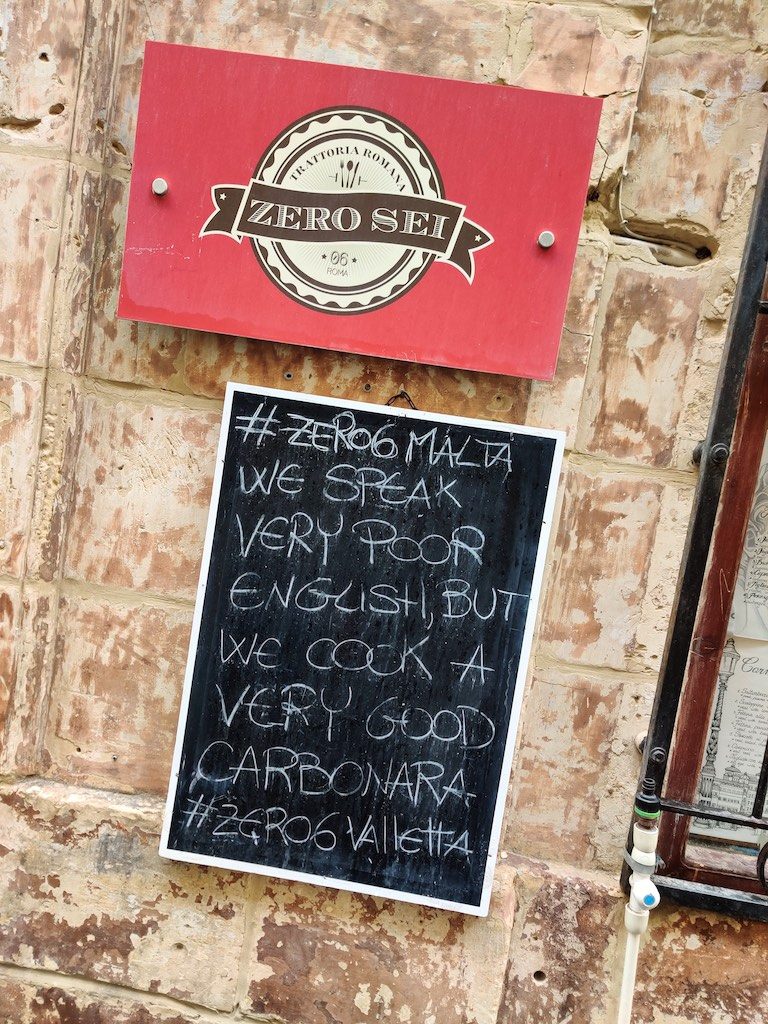 TRATTORIA ROMANA
ZERO SEI
06
ROMA
# ZERO6 MALTA
WE SPEAK
VERY POOR
ENGLISH, BUT
WE COOK A
VERY GOOD
CARBONARA.
#ZERO6 VAllETTA